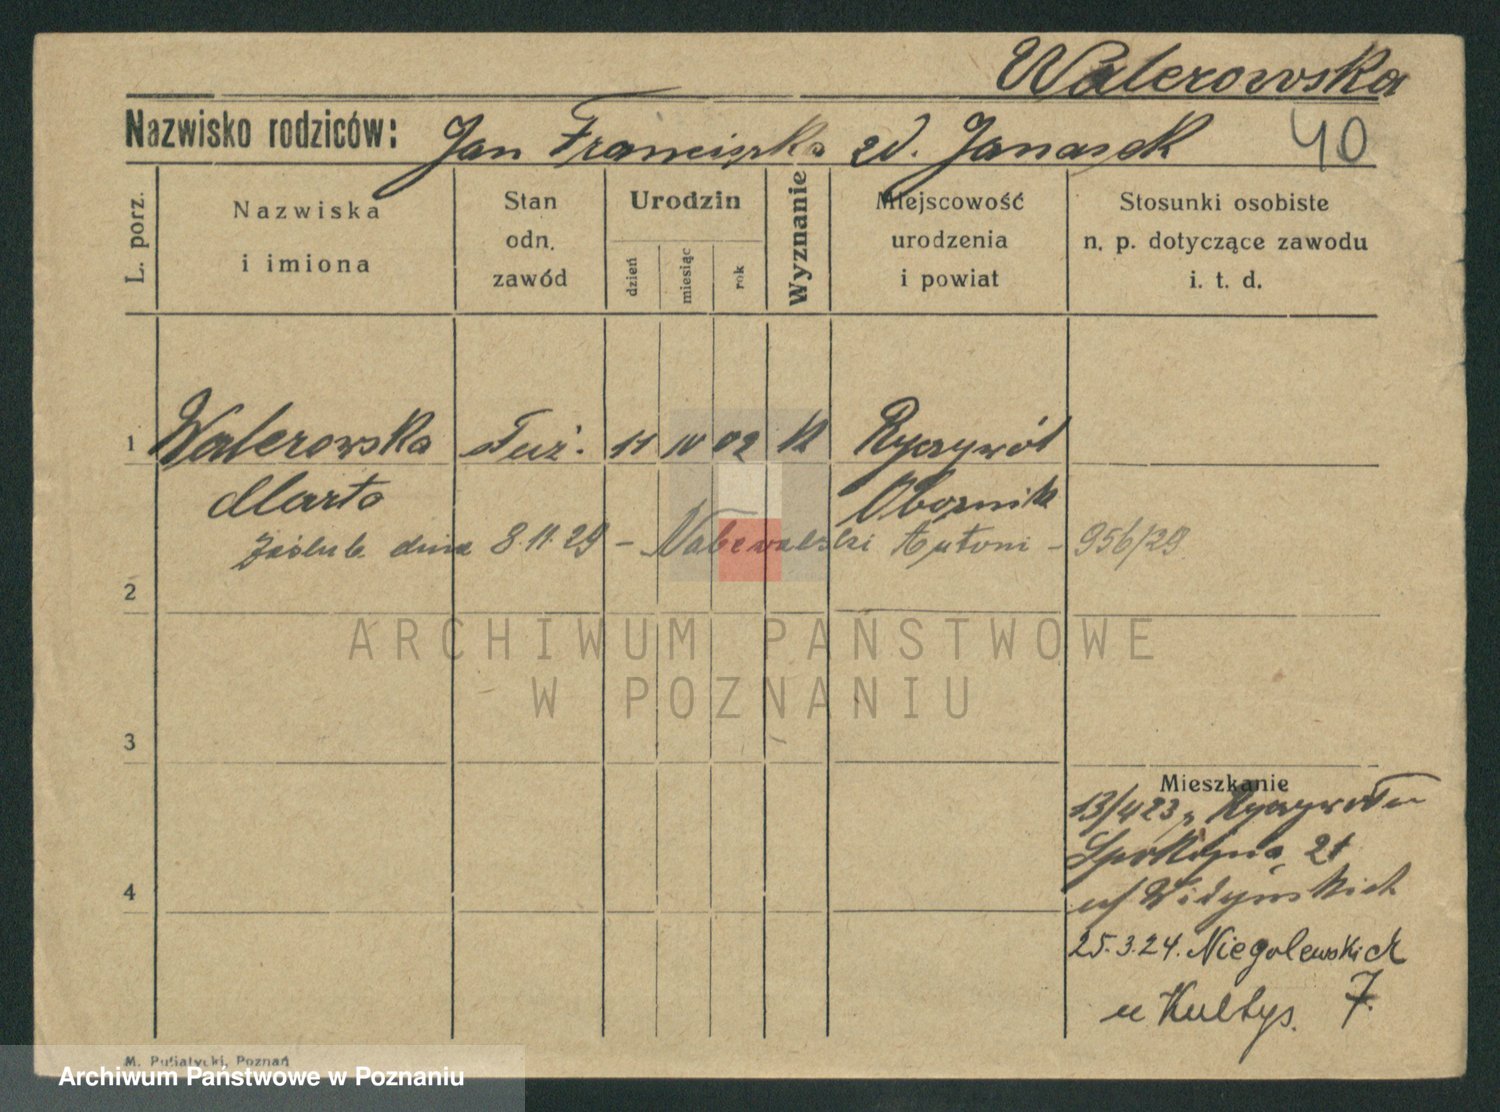 Walerowska
Nazwisko rodziców: Jan Franciszka zd. Janasek 40
L. porz.
Nazwiska i imiona
Stan odn. zawód
Urodzin
dzień miesiąc rok
Wyznanie
Miejscowość urodzenia i powiat
Stosunki osobiste n. p. dotyczące zawodu i. t. d.
1 Walerowska służ. 11 IV 02 K Ryczywół
Marta Obornik
Zaślub. dnia 8.11.29 – Nabewalski Antoni – 956/29
2
ARCHIWUM PAŃSTWOWE
W POZNANIU
3
Mieszkanie
13/4 23 z Ryczywołu
Spokojna 21
4
u/
25.3.24. Niegolewskich
u Kultys. 7.
M. Pusiatycki, Poznań
Archiwum Państwowe w Poznaniu